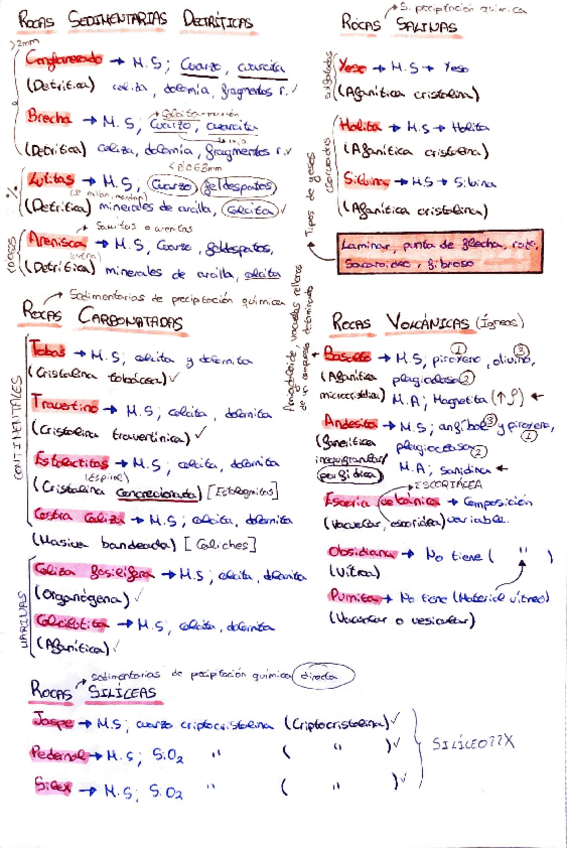 ROCAS SEDIMENTARIAS DETRÍTICAS
>2mm
Conglomerado → M.S; Cuarzo, cuarcita
(Detrítica) caliza, dolomía, fragmentos r. ✓
Brecha → M.S, Cuarzo, cuarcita
(Detrítica) caliza, dolomía, fragmentos r. ✓
Lutitas → M.S; Cuarzo, feldespatos,
(Detrítica) minerales de arcilla, calcita ✓
Samitas o arenitas
Arenisca → M.S, Cuarzo, feldespatos,
(Detrítica) minerales de arcilla, calcita
Sedimentarias de precipitación química
ROCAS CARBONATADAS
CONTINENTALES
Tobas → M.S; calcita y dolomita
(Cristalina tobácea) ✓
Travertino → M.S; calcita, dolomita
(Cristalina travertínica) ✓
Estalactitas → M.S; calcita, dolomita
(Cristalina Concrecionada) [Estalagmitas]
Costra Caliza → M.S; calcita, dolomita
(Masiva bandeada) [Caliches]
MARINAS
Caliza fosilífera → M.S; calcita, dolomita
(Organógena) ✓
Calcilutita → M.S; calcita, dolomita
(Afanítica) ✓
S. precipitación química
ROCAS SALINAS
Yeso → M.S → Yeso
(Afanítica cristalina)
Halita → M.S → Halita
(Afanítica cristalina)
Silvina → M.S → Silvina
(Afanítica cristalina)
Tipos de yesos
Laminar, punta de flecha, roto,
Sacaroideo, fibroso
ROCAS VOLCÁNICAS (Ígneas)
Amigdaloide, vacuolas rellenas
de un compuesto determinado
Basalto → M.S; piroxeno, olivino,
(Afanítica plagioclasa
microcristalina) M.A; Magnetita (↑ρ) ←
Andesita → M.S; anfíbol y piroxeno,
plagioclasa
porfídica) M.A; Sanidina ←
ESCORIÁCEA
Escoria volcánica → Composición
(Vacuolar, escoriácea) variable.
Obsidiana → No tiene ( " )
(Vítrea)
Pumita → No tiene (Material vítreo)
(Vacuolar o vesicular)
sedimentarias de precipitación química directa
ROCAS SILÍCEAS
Jaspe → M.S; cuarzo criptocristalina (Criptocristalina) ✓
Pedernal → M.S; SiO2 " ( " ) ✓
Silex → M.S; SiO2 " ( " ) ✓